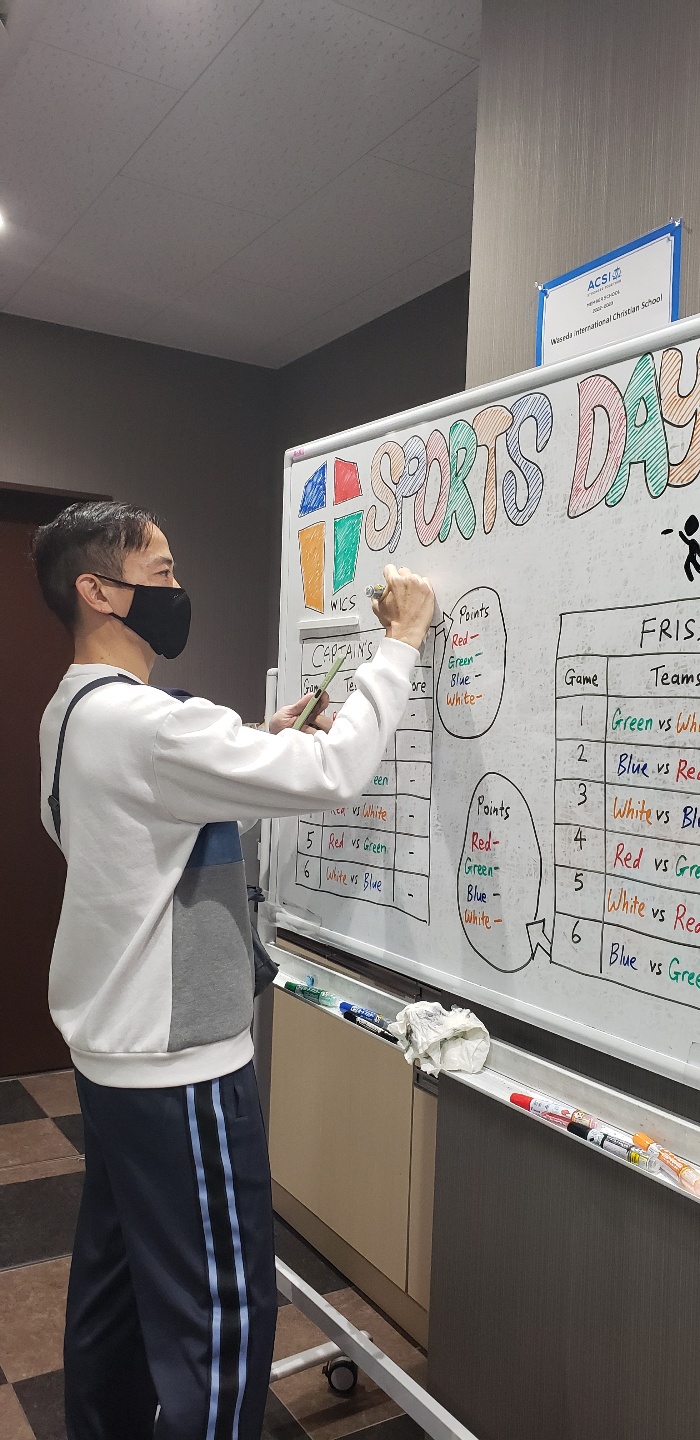 ACSI
MEMBER SCHOOL
2022-2023
Waseda International Christian School
SPORTS DAY
WICS
CAPTAIN'S
Game
ore
-
-
een -
Red vs White -
5 Red vs Green -
6 White vs Blue -
Points
Red -
Green -
Blue -
White -
Points
Red -
Green -
Blue -
White -
FRIS
Game Teams
1 Green vs Whi
2 Blue vs Red
3 White vs Bl
4 Red vs Gre
5 White vs Red
6 Blue vs Gree